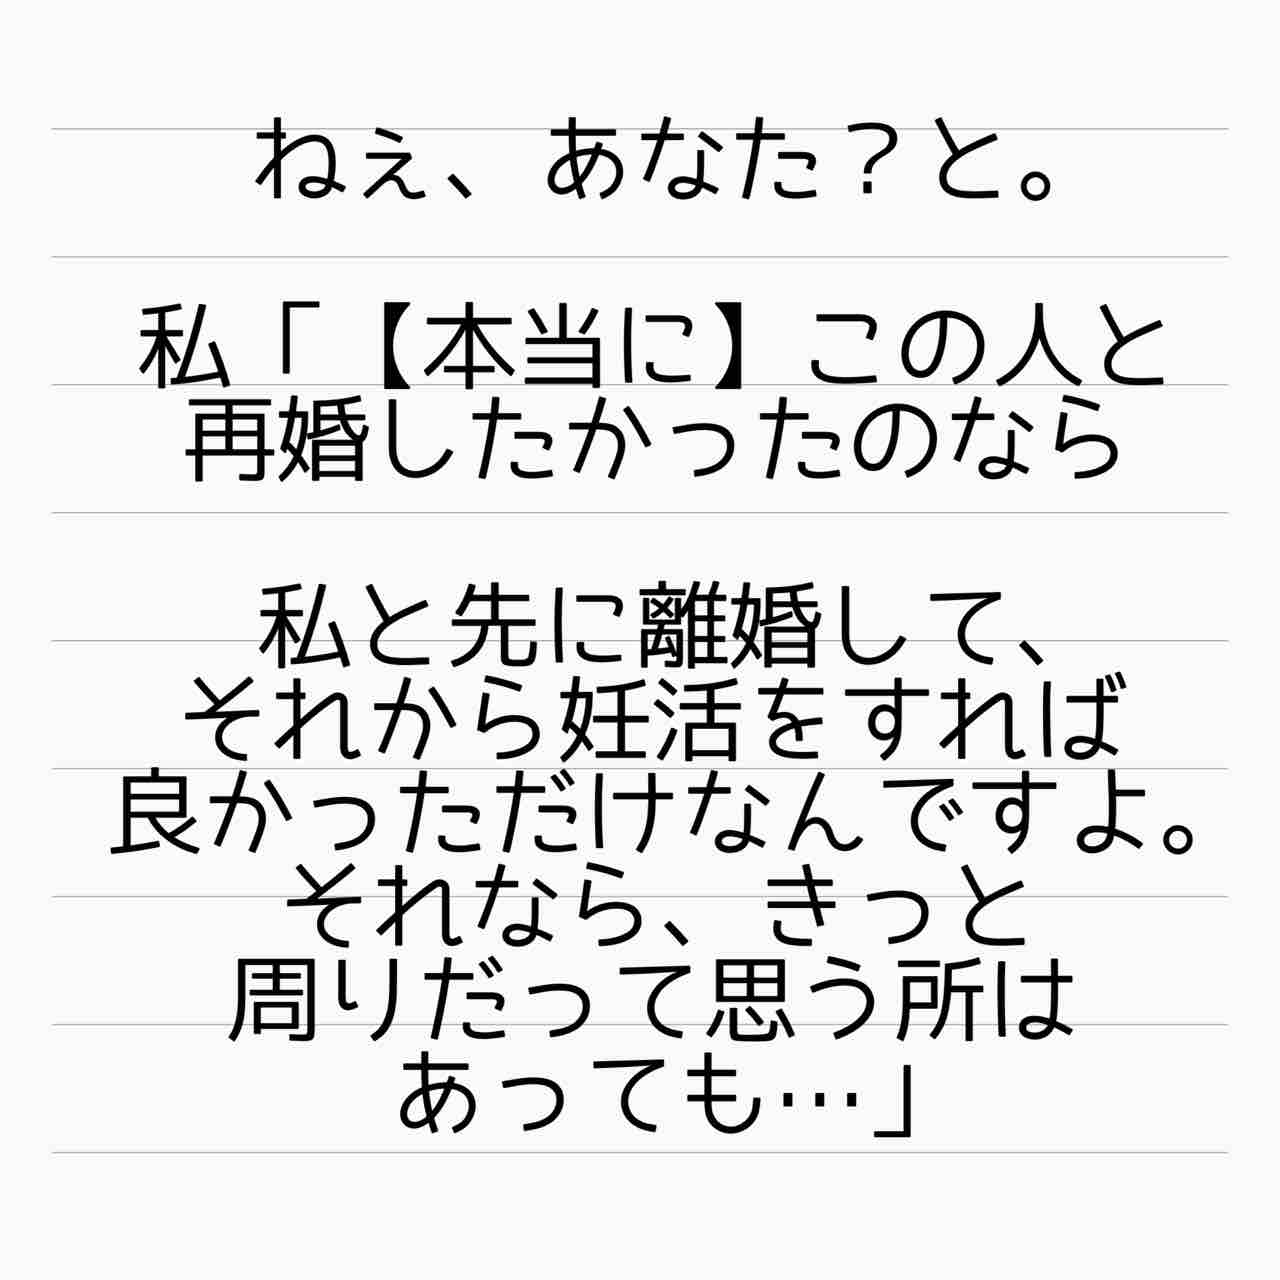 ねぇ、あなた？と。
私「【本当に】この人と
再婚したかったのなら
私と先に離婚して、
それから妊活をすれば
良かっただけなんですよ。
それなら、きっと
周りだって思う所は
あっても…」